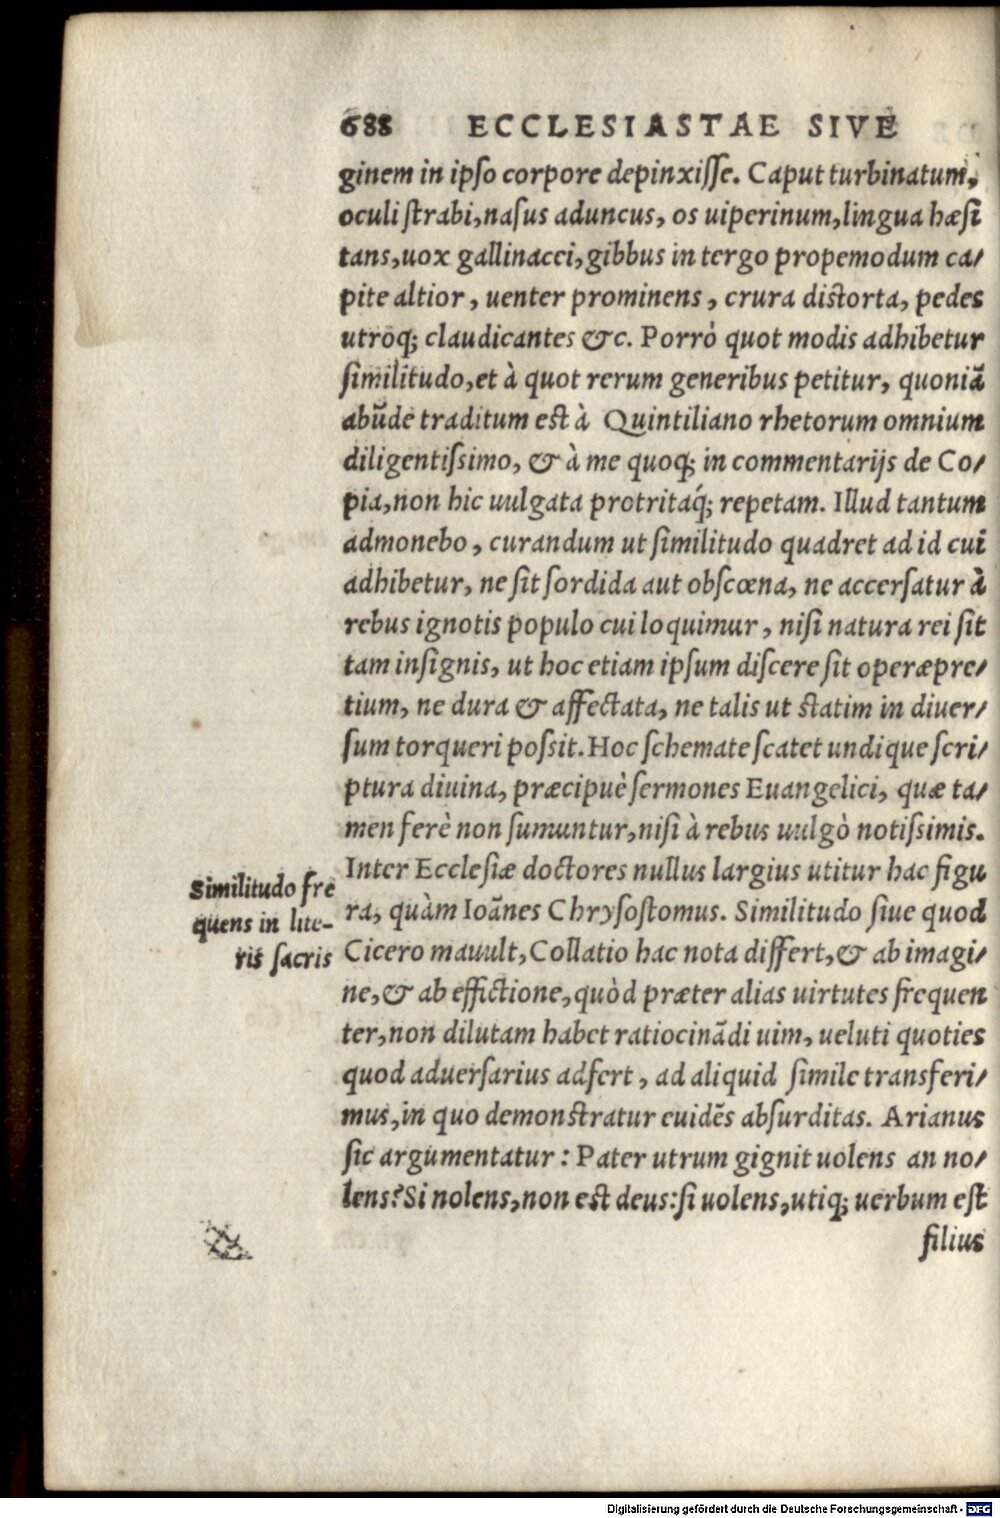 688 ECCLESIASTAE SIVE
ginem in ipſo corpore depinxiſſe. Caput turbinatum,
oculi ſtrabi, naſus aduncus, os uiperinum, lingua hæſi
tans, uox gallinacei, gibbus in tergo propemodum ca/
pite altior, uenter prominens, crura distorta, pedes
utroq; claudicantes &c. Porrò quot modis adhibetur
ſimilitudo, et à quot rerum generibus petitur, quoniã
abũde traditum est à Quintiliano rhetorum omnium
diligentiſsimo, & à me quoq; in commentarijs de Co/
pia, non hic uulgata protritaq́; repetam. Illud tantum
admonebo, curandum ut ſimilitudo quadret ad id cui
adhibetur, ne ſit ſordida aut obſcœna, ne accerſatur à
rebus ignotis populo cui loquimur, niſi natura rei ſit
tam inſignis, ut hoc etiam ipſum diſcere ſit operæpre/
tium, ne dura & affectata, ne talis ut statim in diuer/
ſum torqueri poſsit. Hoc ſchemate ſcatet undique ſcri/
ptura diuina, præcipuè ſermones Euangelici, quæ ta/
men ferè non ſumuntur, niſi à rebus uulgò notiſsimis.
Inter Eccleſiæ doctores nullus largius utitur hac figu
ra, quàm Ioãnes Chryſoſtomus. Similitudo ſiue quod
Cicero mauult, Collatio hac nota differt, & ab imagi/
ne, & ab effictione, quòd præter alias uirtutes frequen
ter, non dilutam habet ratiocinãdi uim, ueluti quoties
quod aduerſarius adfert, ad aliquid ſimile transferi/
mus, in quo demonstratur euidẽs abſurditas. Arianus
ſic argumentatur: Pater utrum gignit uolens an no/
lens? Si nolens, non est deus: ſi uolens, utiq; uerbum eſt
filius
Similitudo fre
quens in lite-
ris ſacris
Digitalisierung gefördert durch die Deutsche Forschungsgemeinschaft - DFG